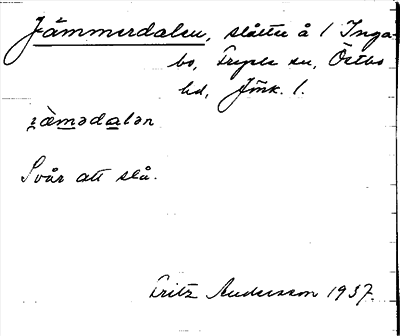 Jämmerdalen, slåtter å 1 Inga-
bo, Fryele sn, Östbo
hd, Jönk. l.
jæ̀mədalən
Svår att slå.
Fritz Andersson 1937.